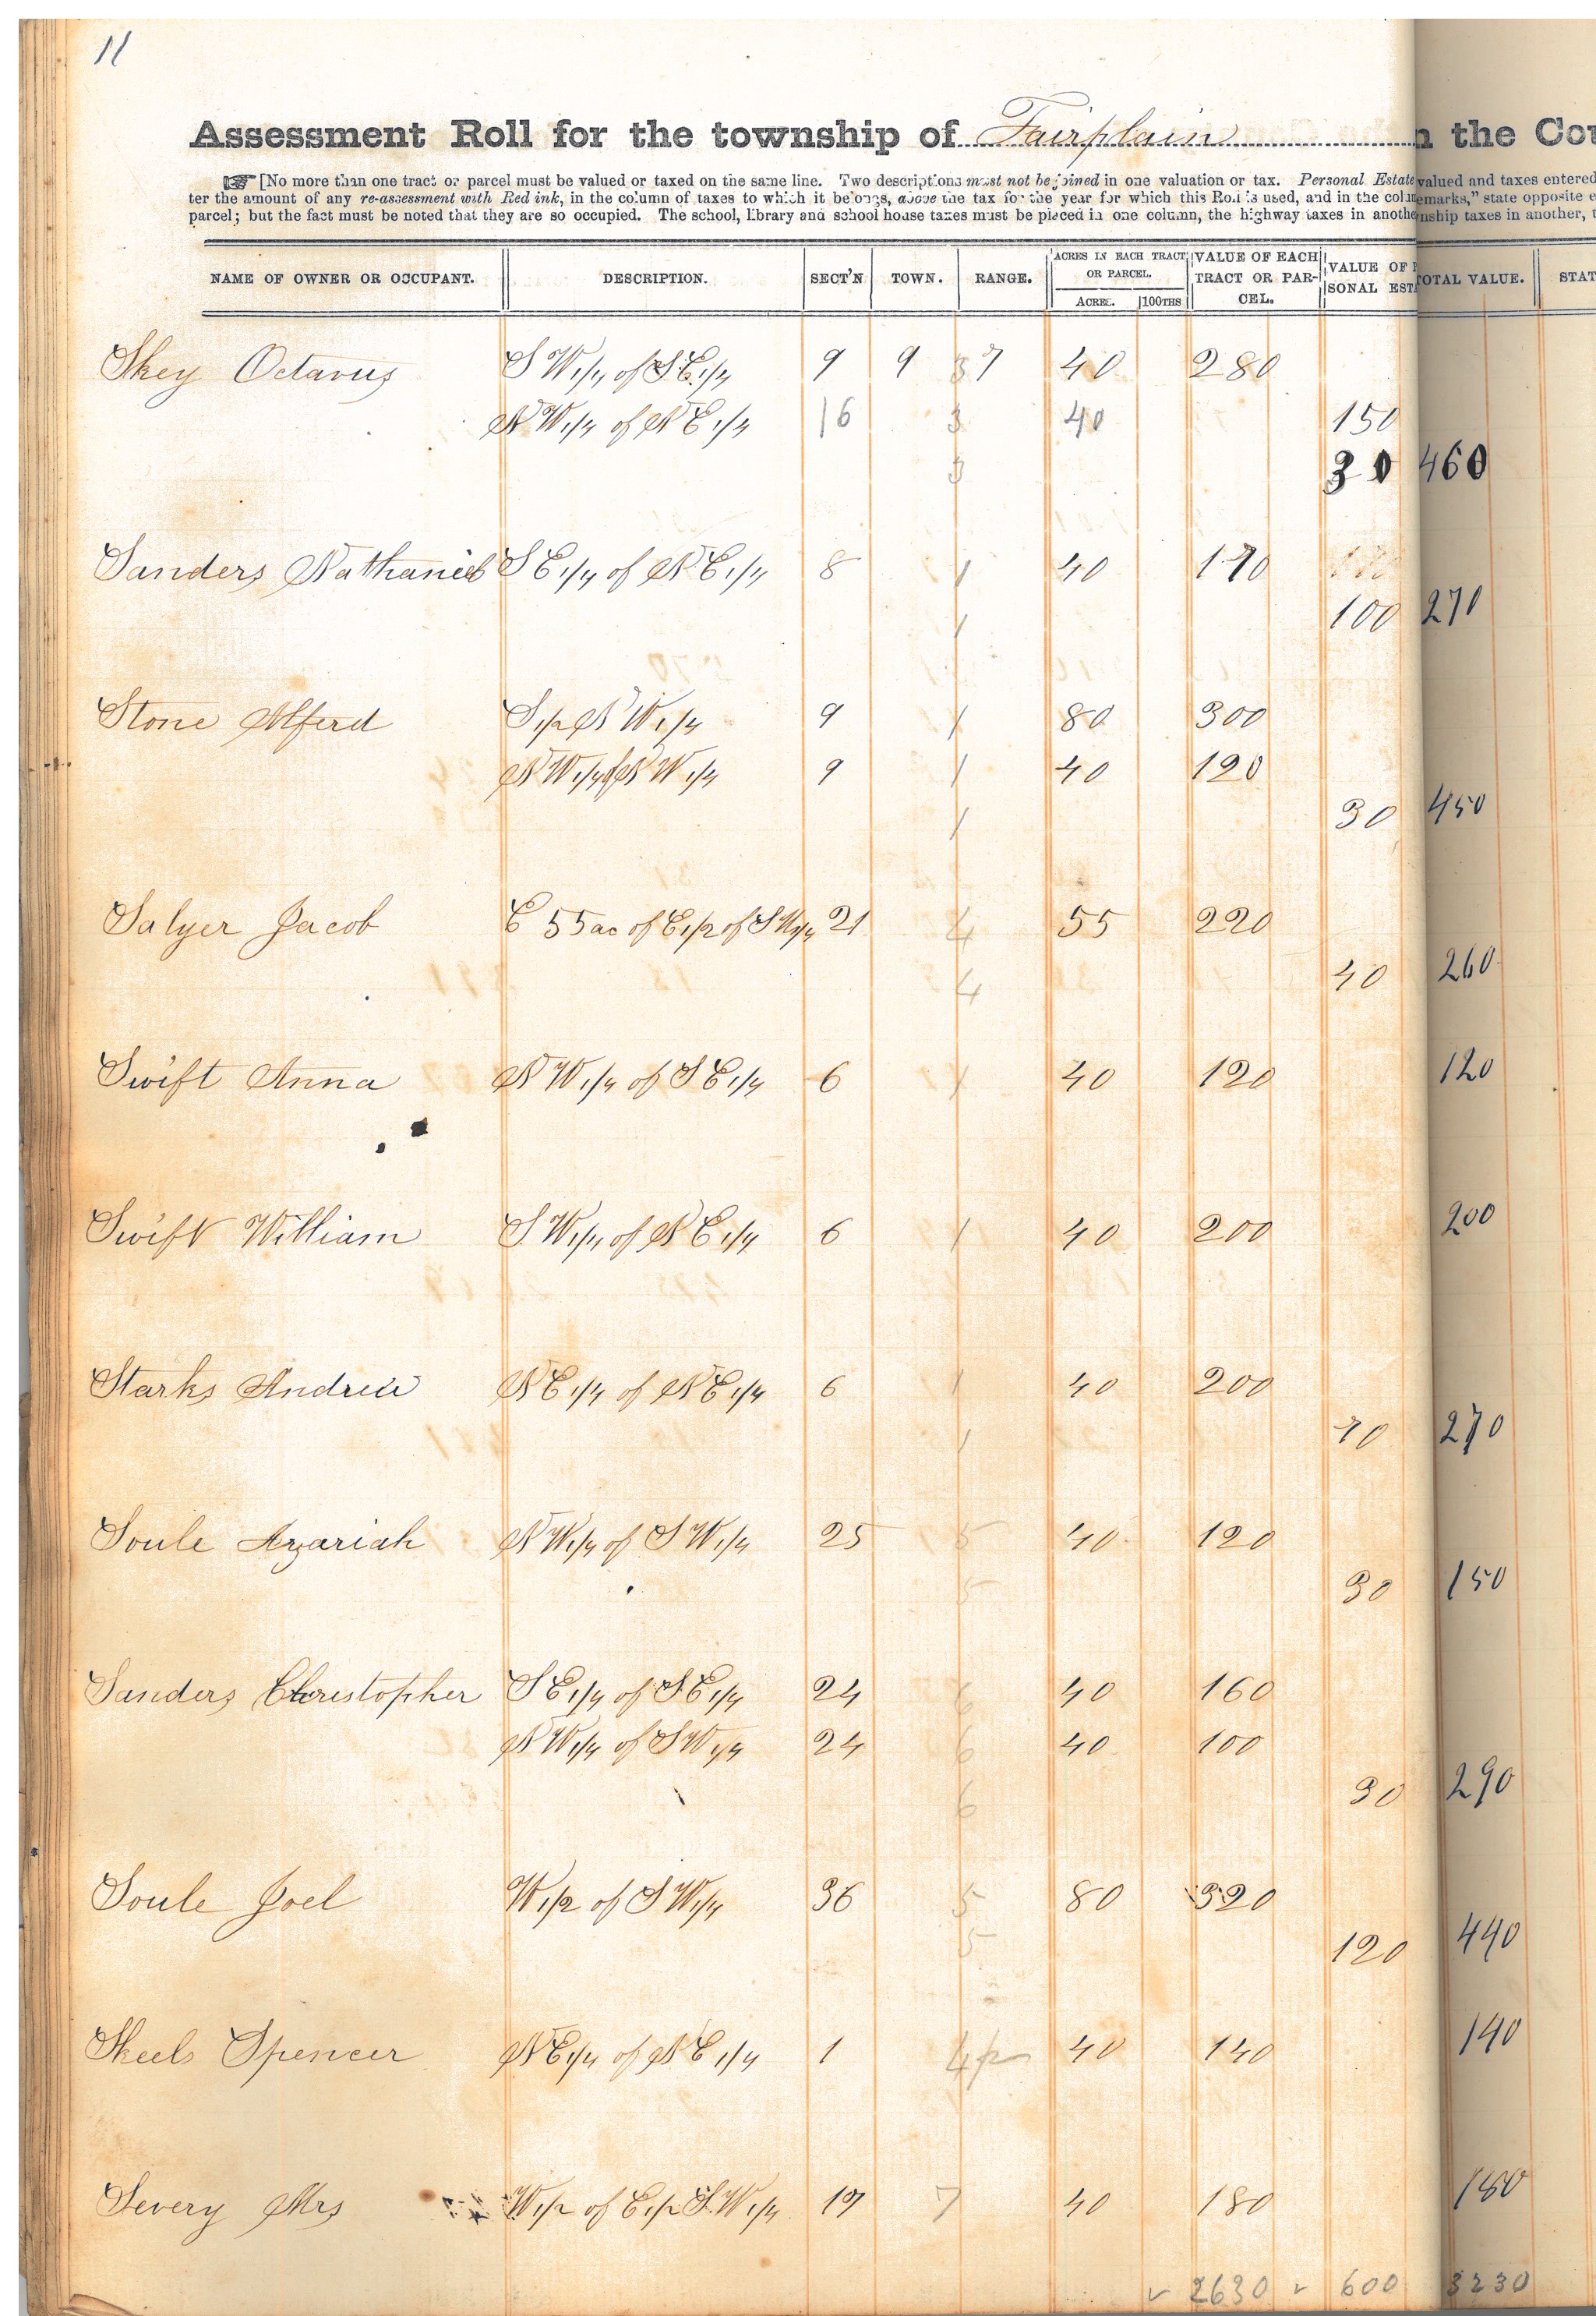 11
Assessment Roll for the township of Fairplain n the Cou
[No more than one tract or parcel must be valued or taxed on the same line. Two descriptions must not be joined in one valuation or tax. Personal Estate valued and taxes entered
ter the amount of any re-assessment with Red ink, in the column of taxes to which it belongs, above the tax for the year for which this Roll is used, and in the colu emarks," state opposite e
parcel; but the fact must be noted that they are so occupied. The school, library and school house taxes must be placed in one column, the highway taxes in anothe nship taxes in another, t
NAME OF OWNER OR OCCUPANT. DESCRIPTION. SECT'N TOWN. RANGE. ACRES IN EACH TRACT OR PARCEL. ACRES. 100THS VALUE OF EACH TRACT OR PARCEL. VALUE OF P SONAL ESTA OTAL VALUE. STAT
Skey Octavus S W 1/4 of S E 1/4 9 9 3 7 40 280
N W 1/4 of N E 1/4 16 3 40 150
3 30 460
Sanders Nathaniel S E 1/4 of N E 1/4 8 1 40 170
1 100 270
Stone Alferd S 1/2 N W 1/4 9 1 80 300
N W 1/4 of N W 1/4 9 1 40 120
1 30 450
Salyer Jacob E 55 ac of E 1/2 of S W 1/4 21 4 55 220
4 40 260
Swift Anna N W 1/4 of S E 1/4 6 1 40 120 120
Swift William S W 1/4 of N E 1/4 6 1 40 200 200
Starks Andrew N E 1/4 of N E 1/4 6 1 40 200
1 70 270
Soule Azariah N W 1/4 of S W 1/4 25 5 40 120
5 30 150
Sanders Christopher S E 1/4 of S E 1/4 24 6 40 160
N W 1/4 of S W 1/4 24 6 40 100
6 30 290
Soule Joel W 1/2 of S W 1/4 36 5 80 320
5 120 440
Skeels Spencer N E 1/4 of N E 1/4 1 4 40 140 140
Severy Mrs W 1/2 of E 1/2 S W 1/4 17 7 40 180 180
2630 600 3230